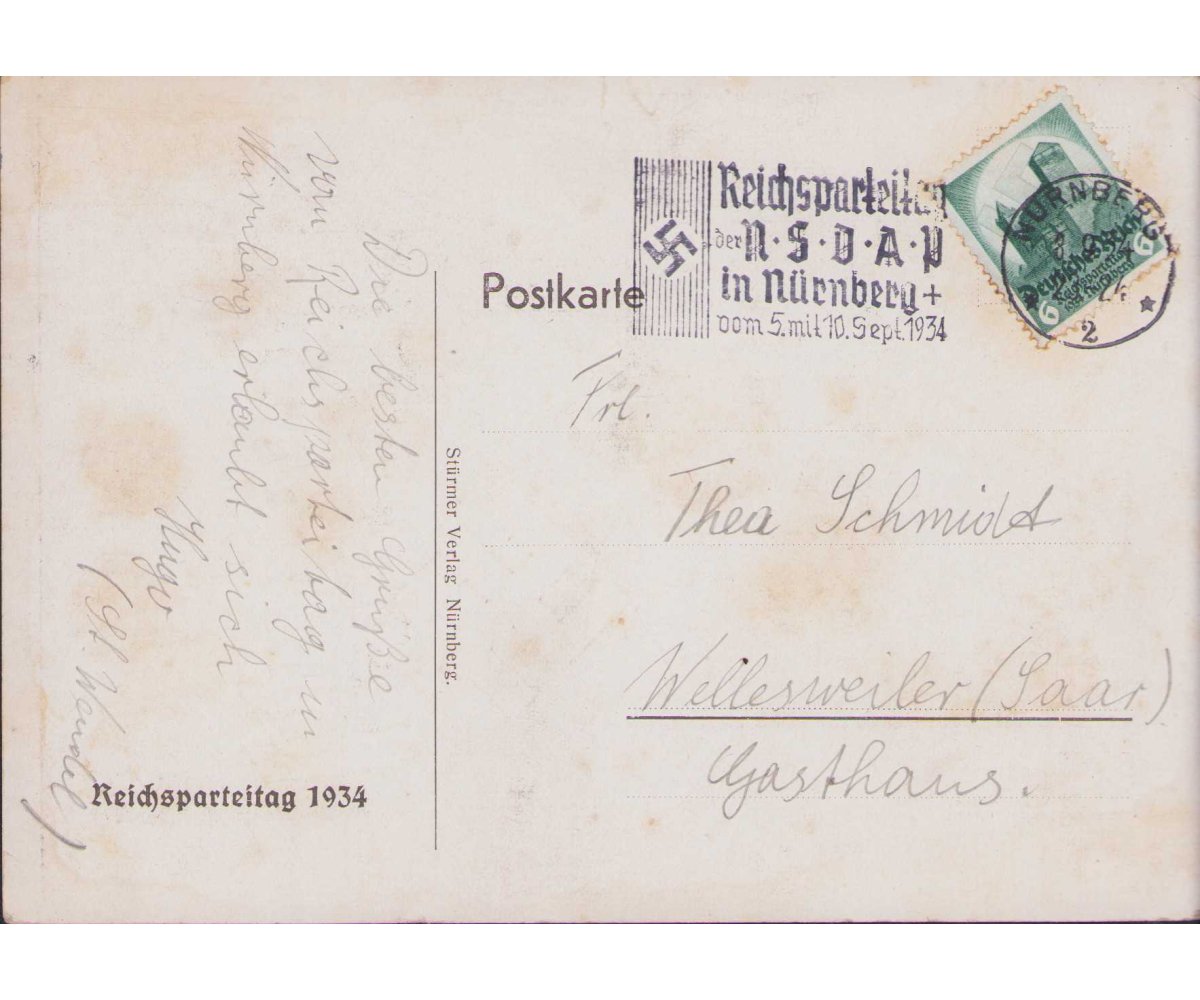 Postkarte
Reichsparteitag
der N·S·D·A·P
in Nürnberg +
vom 5. mit 10. Sept. 1934
NÜRNBERG
2
Deutsches Reich
Reichsparteitag
Nürnberg
6
6
Die besten Grüße
vom Reichsparteitag in
Nürnberg erlaubt sich
Hugo
(St. Wendel)
Reichsparteitag 1934
Stürmer Verlag Nürnberg.
Frl.
Thea Schmidt
Wellesweiler (Saar)
Gasthaus.